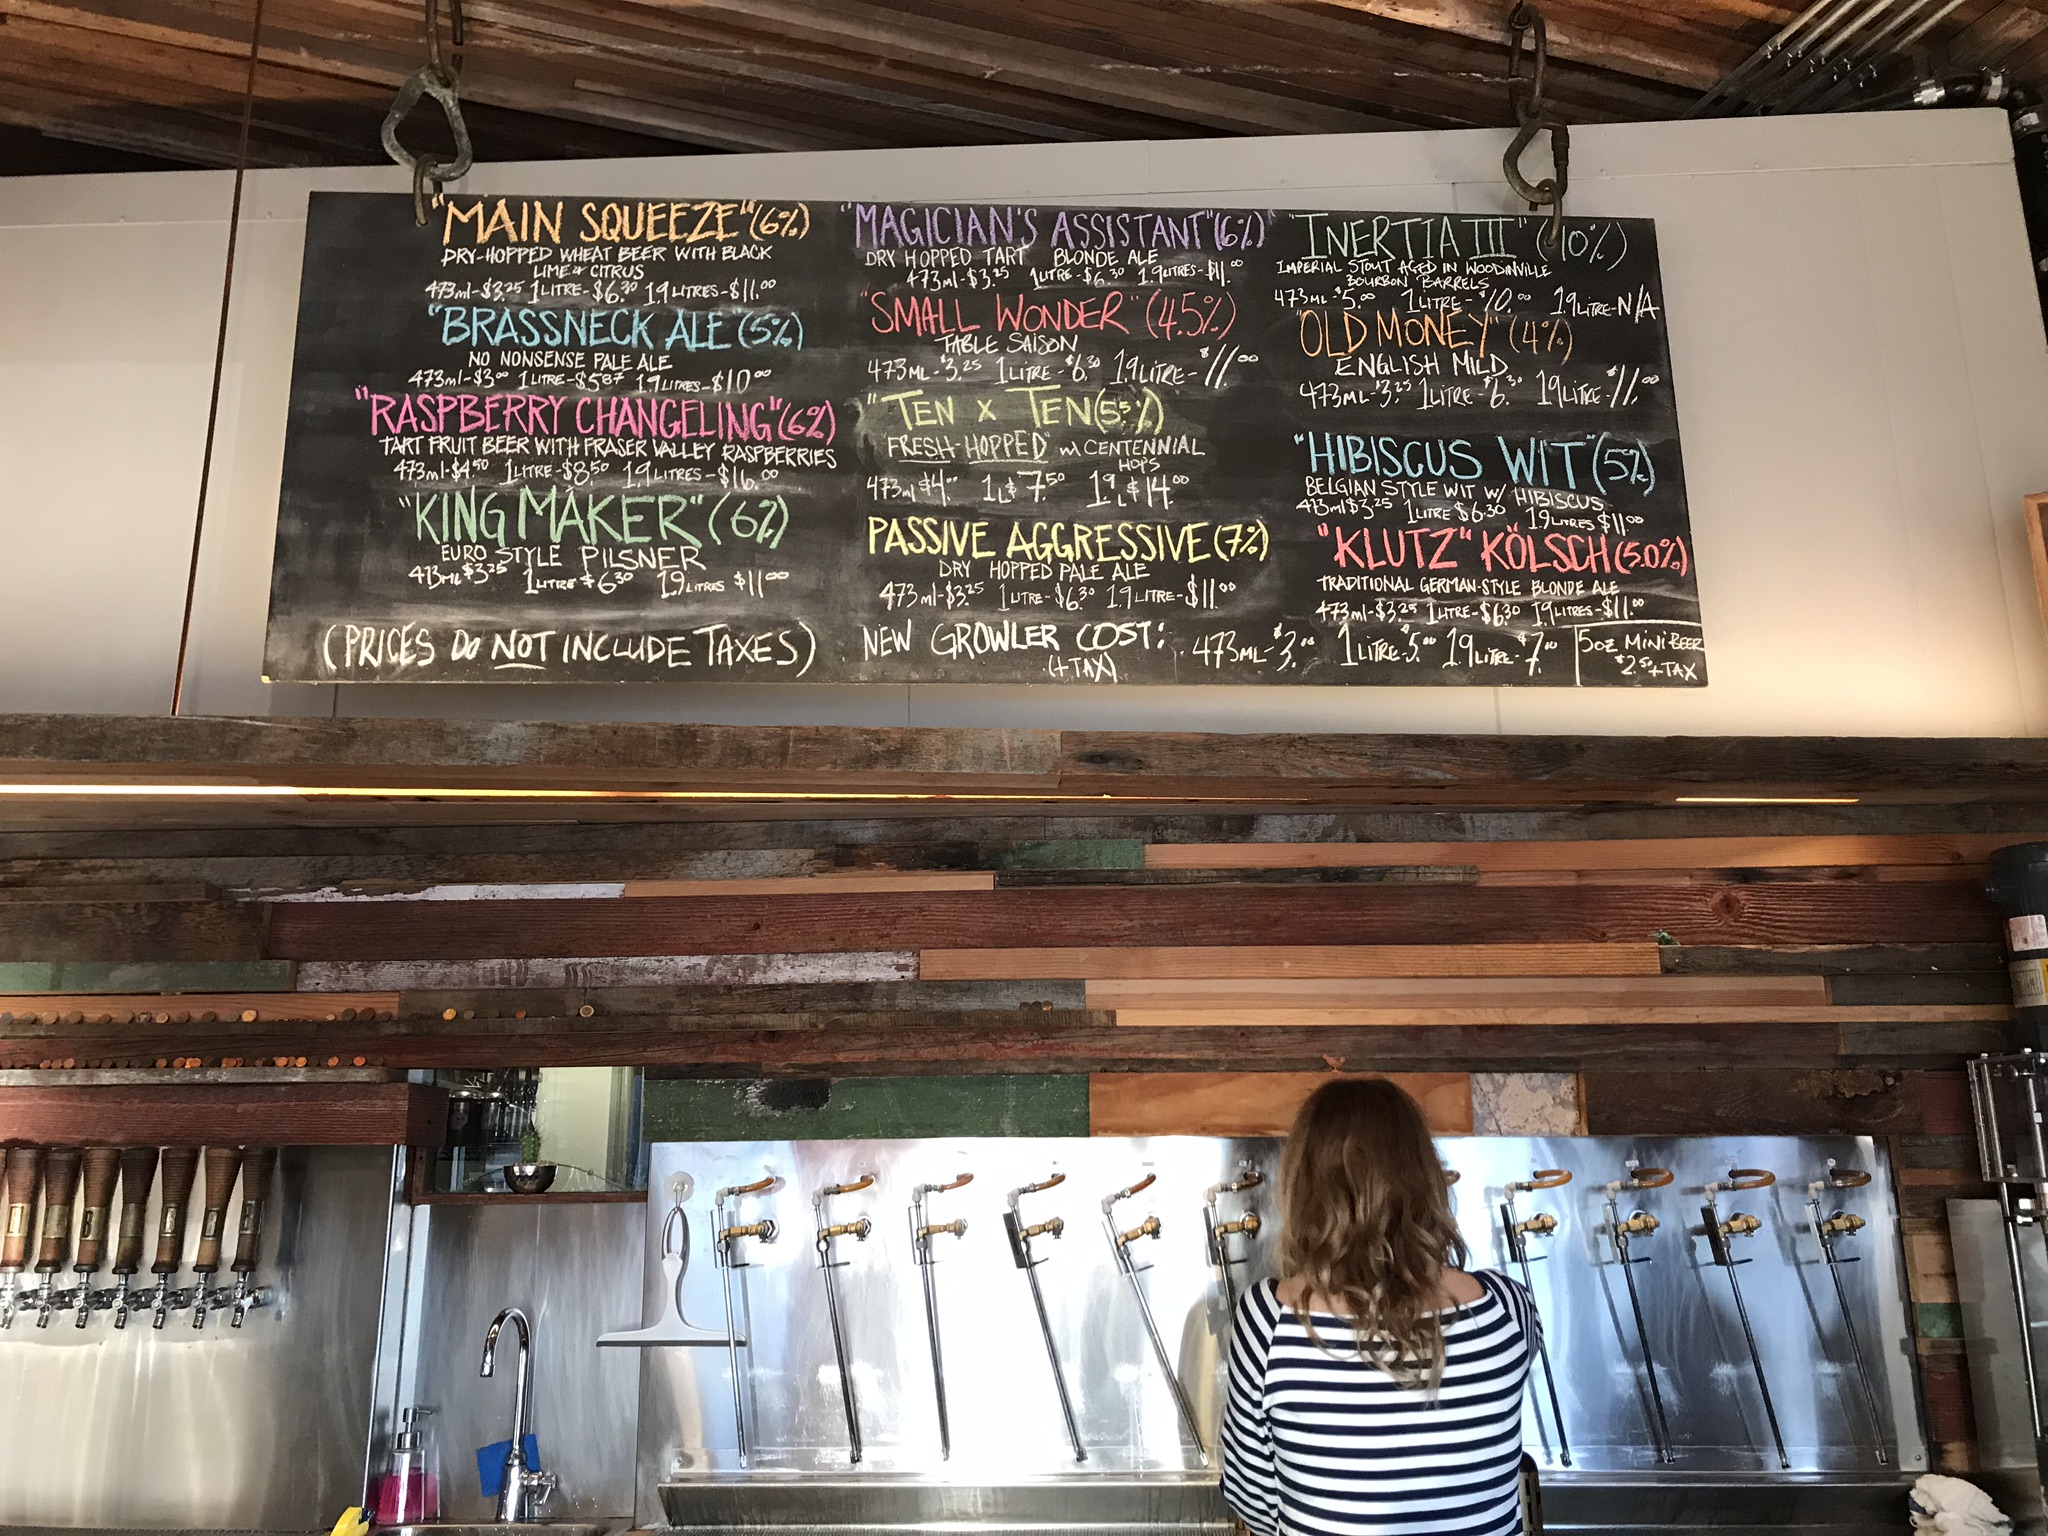 "MAIN SQUEEZE" (6%)
DRY-HOPPED WHEAT BEER WITH BLACK
LIME & CITRUS
473ml-$3.25 1LITRE-$6.30 1.9LITRES-$11.00
"BRASSNECK ALE" (5%)
NO NONSENSE PALE ALE
473ml-$3.00 1LITRE-$5.87 1.9LITRES-$10.00
"RASPBERRY CHANGELING" (6%)
TART FRUIT BEER WITH FRASER VALLEY RASPBERRIES
473ml-$4.50 1LITRE-$8.50 1.9LITRES-$16.00
"KINGMAKER" (6%)
EURO STYLE PILSNER
473ML $3.25 1LITRE $6.30 1.9LITRES $11.00
(PRICES DO NOT INCLUDE TAXES)
"MAGICIAN'S ASSISTANT" (6%)
DRY HOPPED TART BLONDE ALE
473ml-$3.25 1LITRE-$6.30 1.9LITRES-$11.00
"SMALL WONDER" (4.5%)
TABLE SAISON
473ML-$3.25 1LITRE-$6.30 1.9LITRE-$11.00
"TEN X TEN (5.5%)
"FRESH-HOPPED" w/ CENTENNIAL
HOPS
473ml $4.00 1L $7.50 1.9L $14.00
PASSIVE AGGRESSIVE (7%)
DRY HOPPED PALE ALE
473ml-$3.25 1LITRE-$6.30 1.9LITRE-$11.00
"INERTIA III" (10%)
IMPERIAL STOUT AGED IN WOODINVILLE
BOURBON BARRELS
473ML-$5.00 1LITRE-$10.00 1.9LITRE-N/A
"OLD MONEY" (4%)
ENGLISH MILD
473ML-$3.25 1LITRE-$6.30 1.9LITRE-$11.00
"HIBISCUS WIT" (5%)
BELGIAN STYLE WIT W/ HIBISCUS
473ml $3.25 1LITRE $6.30 1.9LITRES $11.00
"KLUTZ" KÖLSCH (5.0%)
TRADITIONAL GERMAN-STYLE BLONDE ALE
473ml-$3.25 1LITRE-$6.30 1.9LITRES-$11.00
NEW GROWLER COST: 473ML-$3.00 1LITRE-$5.00 1.9LITRE-$7.00
(+TAX)
5oz MINI BEER
$2.50 + TAX